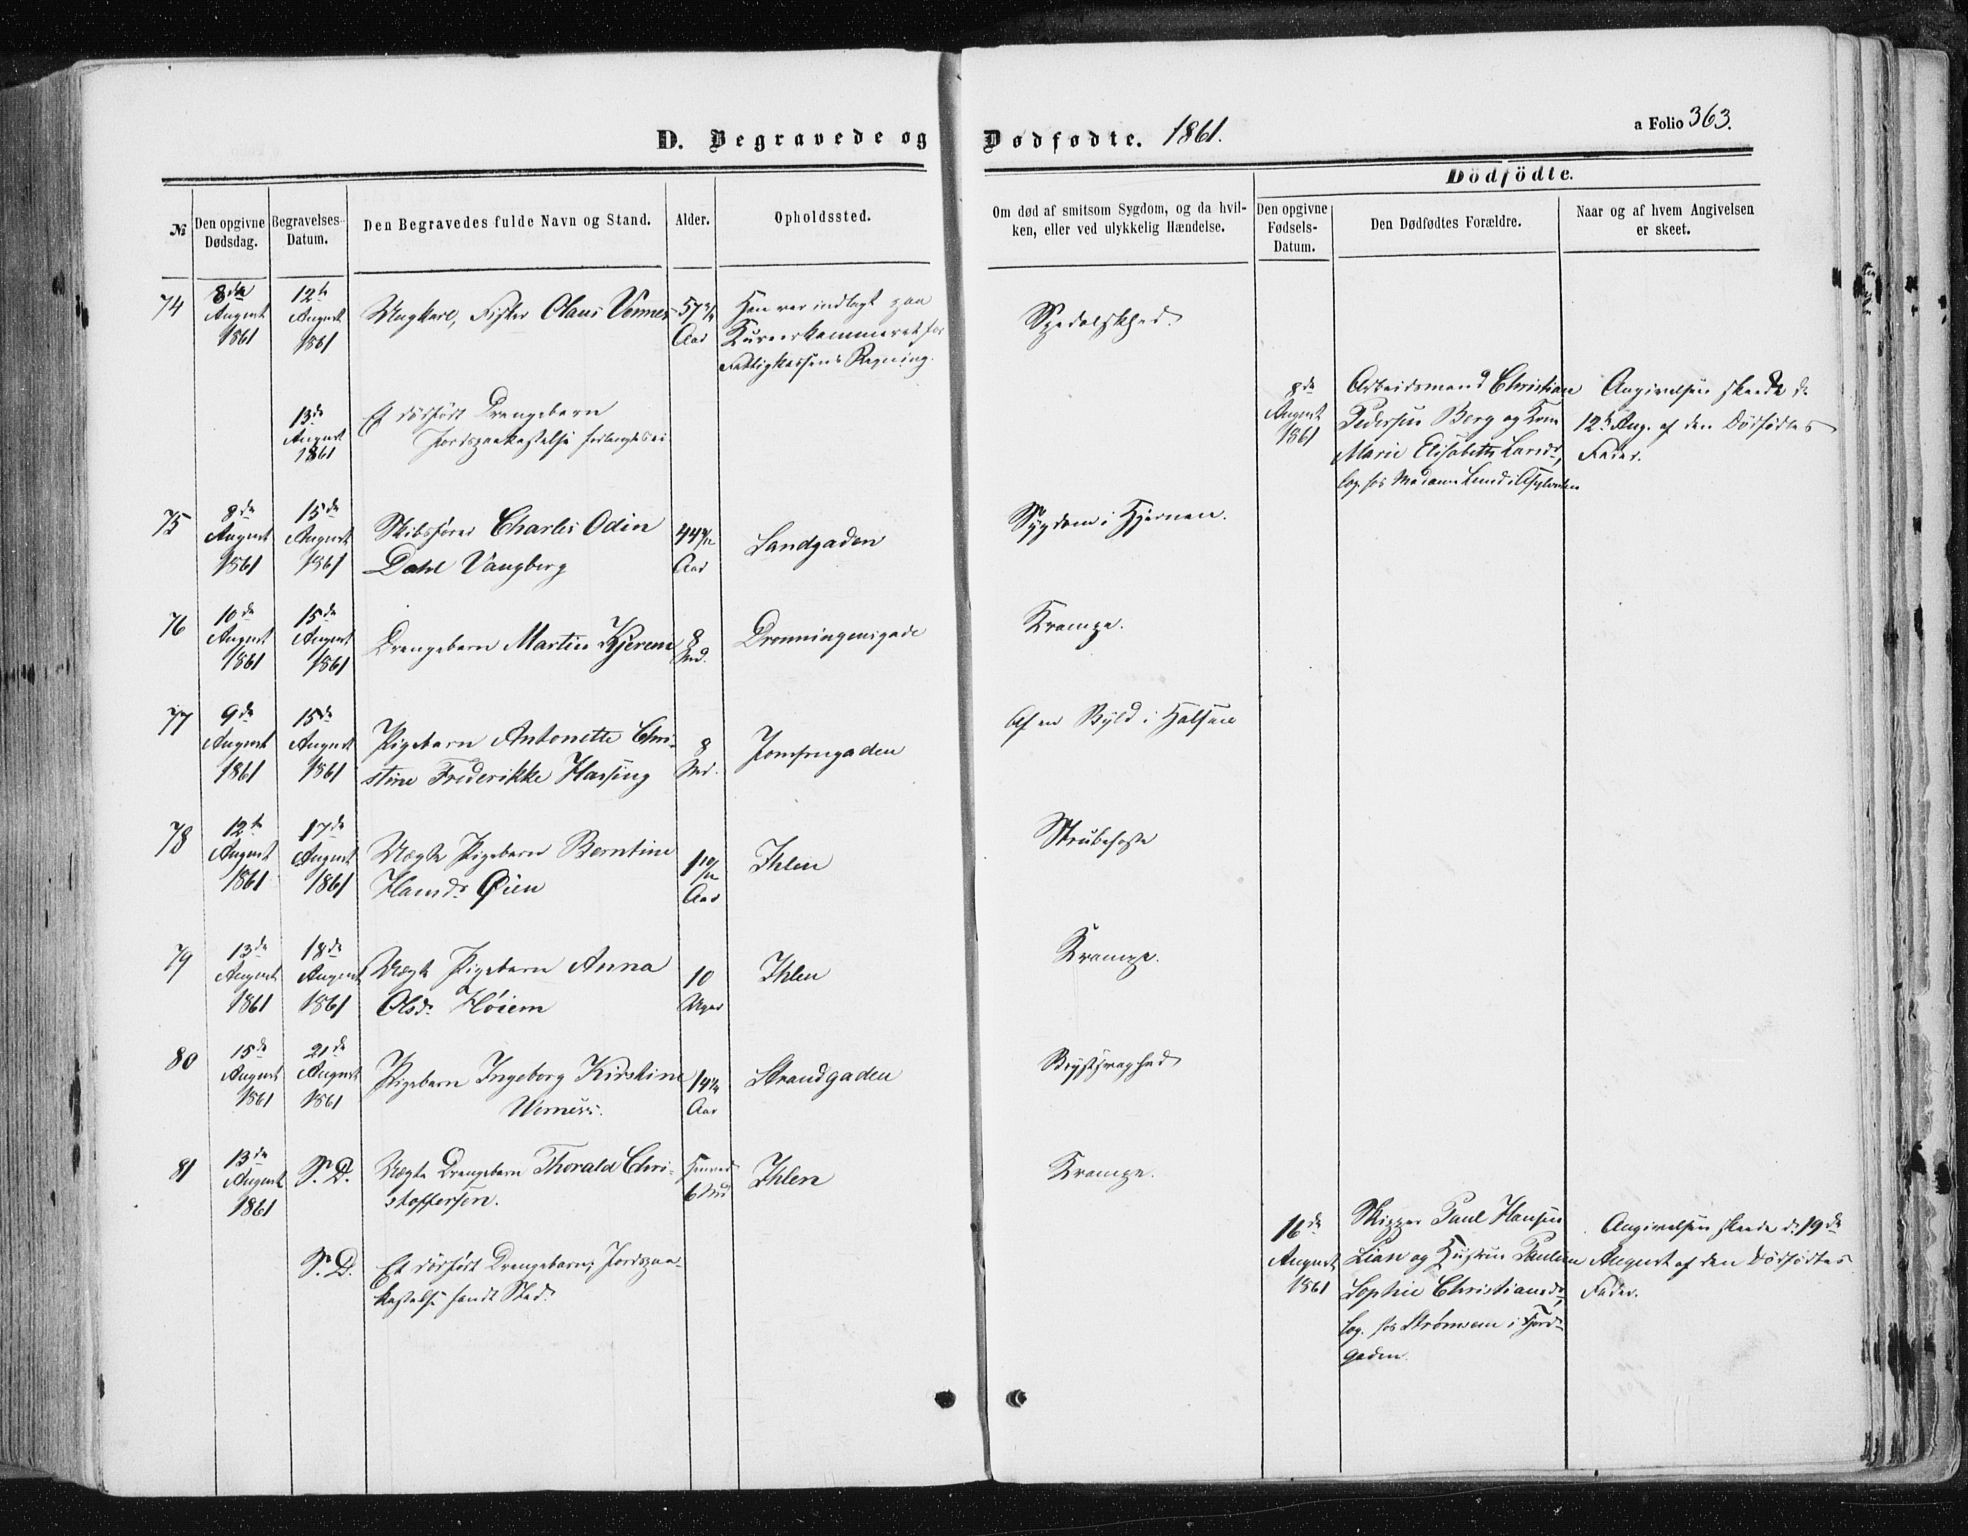 D. Begravede og Dødfødte. 1861.
a Folio 363.
№
Den opgivne Dødsdag.
Begravelses-Datum.
Den Begravedes fulde Navn og Stand.
Alder.
Opholdssted.
Om død af smitsom Sygdom, og da hvil-
ken, eller ved ulykkelig Hændelse.
Dödfödte.
Den opgivne Fødsels-Datum.
Den Dødfødtes Forældre.
Naar og af hvem Angivelsen
er skeet.
74
8de August 1861
12te August 1861
Ungkarl, Fisker Claus
57
Aar
Han var indlagt paa
Fattigkassens Regning.
Spedalskhed.
13de August 1861
Et dødfødt Drengebarn
Jordspaakastelse
8de August 1861
Arbeidsmand Christian
Pedersen Berg og Kone
Marie Elisabeth Larsd.,
log. hos Madame Lund i
Angivelsen skeede d.
12te Aug. af den Dødfødtes
Fader.
75
8de August 1861
15de August 1861
Skibsfører Charles Odin
Dahl Vangberg
44
Aar
Sandgaden
Sygdom i Hjernen.
76
10de August 1861
15de August 1861
Drengebarn Martin Kjerem
8
Md.
Dronningensgade
Krampe.
77
9de August 1861
15de August 1861
Pigebarn Antonette Chri-
stine Frederikke Hassing
8
Md.
Jomfrugaden
Af en Byld i Halsen
78
12te August 1861
17de August 1861
Uægte Pigebarn Berntine
Hansd. Øien
1 10/12
Aar
Ihlen
Strubehoste
79
13de August 1861
18de August 1861
Uægte Pigebarn Anna
Olsd. Høiem
10
Uger
Ihlen
Krampe.
80
15de August 1861
21de August 1861
Pigebarn Ingeborg Kirstine
14
Aar
Strandgaden
Brystsvaghed
81
13de August 1861
S. D.
Uægte Drengebarn Thorald Chri-
stoffersen.
6 Md
Ihlen
Krampe.
S. D.
Et dødfødt Drengebarn; Jordspaa-
kastelse fandt Sted.
16de August 1861
Skipper Paul Hansen
Lian og Hustru Pauline
Sophie Christiansd.,
log. hos Strømsem i Fjord-
gaden.
Angivelsen skeede d. 19de
August af den Dødfødtes
Fader.